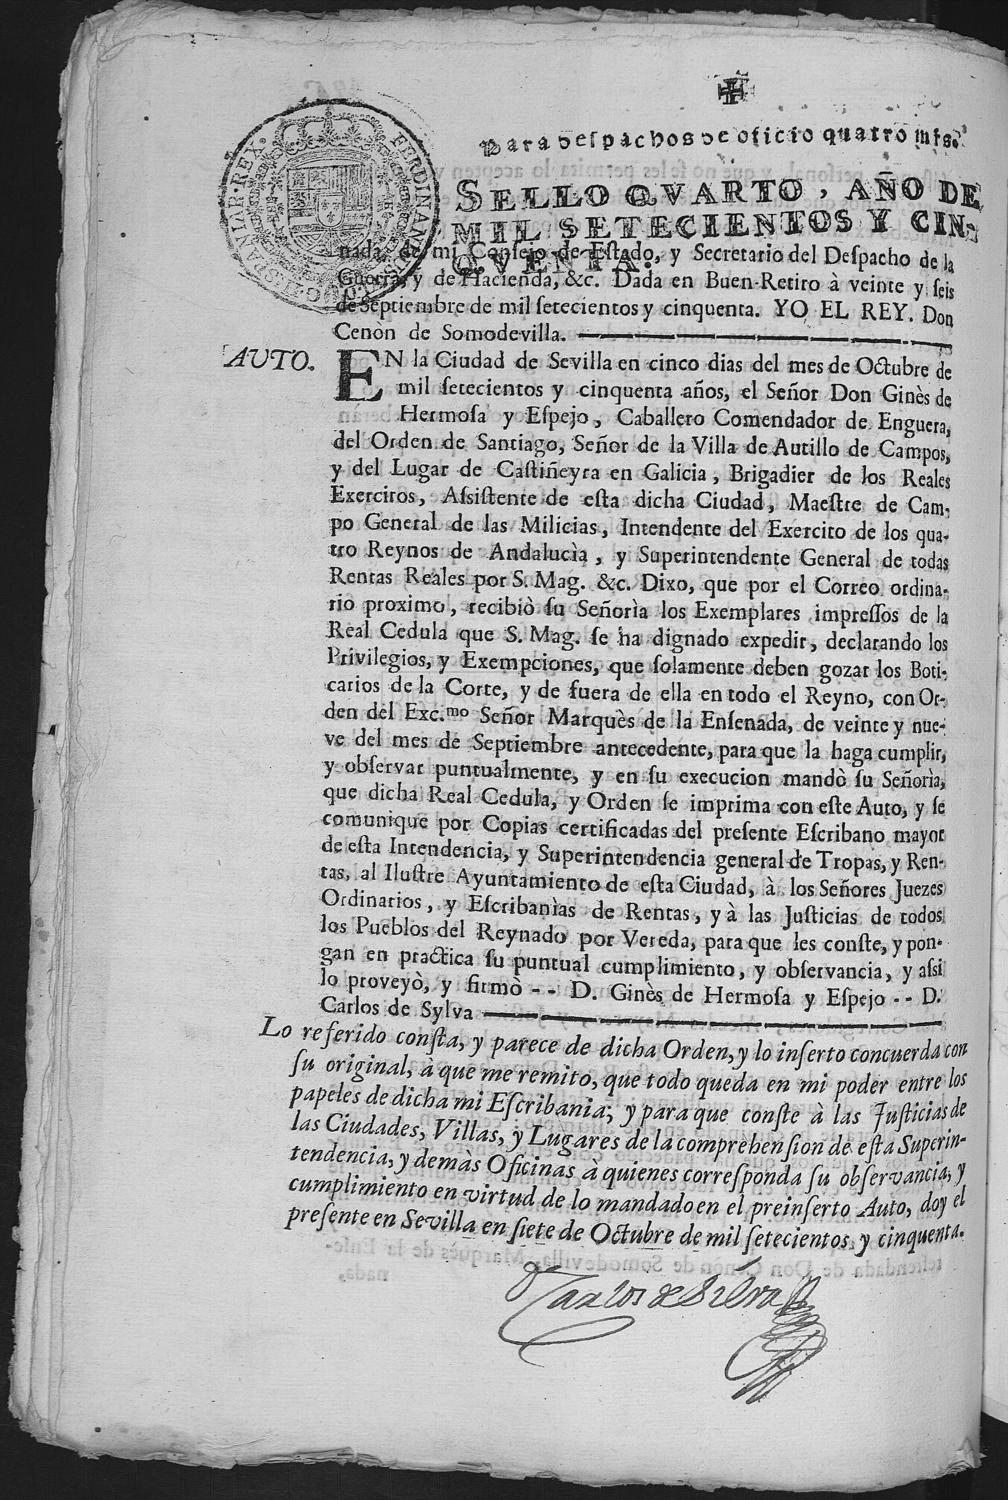 ✠
Para despachos de oficio quatro mrs.
SELLO QVARTO, AÑO DE
MIL SETECIENTOS Y CIN-
QVENTA.
FERDINAND HISPANIAR·REX·
nada, de mi Consejo de Estado, y Secretario del Despacho de la
Guerra, y de Hacienda, &c. Dada en Buen-Retiro à veinte y seis
de Septiembre de mil setecientos y cinquenta. YO EL REY. Don
Cenòn de Somodevilla.
AUTO.
EN la Ciudad de Sevilla en cinco dias del mes de Octubre de
mil setecientos y cinquenta años, el Señor Don Ginès de
Hermosa y Espejo, Caballero Comendador de Enguera,
del Orden de Santiago, Señor de la Villa de Autillo de Campos,
y del Lugar de Castiñeyra en Galicia, Brigadier de los Reales
Exercitos, Assistente de esta dicha Ciudad, Maestre de Cam-
po General de las Milicias, Intendente del Exercito de los qua-
tro Reynos de Andalucìa, y Superintendente General de todas
Rentas Reales por S. Mag. &c. Dixo, que por el Correo ordina-
rio proximo, recibiò su Señoria los Exemplares impressos de la
Real Cedula que S. Mag. se ha dignado expedir, declarando los
Privilegios, y Exempciones, que solamente deben gozar los Boti-
carios de la Corte, y de fuera de ella en todo el Reyno, con Or-
den del Exc.mo Señor Marquès de la Ensenada, de veinte y nue-
ve del mes de Septiembre antecedente, para que la haga cumplir,
y observar puntualmente, y en su execucion mandò su Señorìa,
que dicha Real Cedula, y Orden se imprima con este Auto, y se
comunique por Copias certificadas del presente Escribano mayor
de esta Intendencia, y Superintendencia general de Tropas, y Ren-
tas, al Ilustre Ayuntamiento de esta Ciudad, à los Señores Juezes
Ordinarios, y Escribanìas de Rentas, y à las Justicias de todos
los Pueblos del Reynado por Vereda, para que les conste, y pon-
gan en practica su puntual cumplimiento, y observancia, y assi
lo proveyò, y firmò - - D. Ginès de Hermosa y Espejo - - D.
Carlos de Sylva
Lo referido consta, y parece de dicha Orden, y lo inserto concuerda con
su original, à que me remito, que todo queda en mi poder entre los
papeles de dicha mi Escribania; y para que conste à las Justicias de
las Ciudades, Villas, y Lugares de la comprehension de esta Superin-
tendencia, y demàs Oficinas à quienes corresponda su observancia, y
cumplimiento en virtud de lo mandado en el preinserto Auto, doy el
presente en Sevilla en siete de Octubre de mil setecientos y cinquenta.
Carlos de Silva